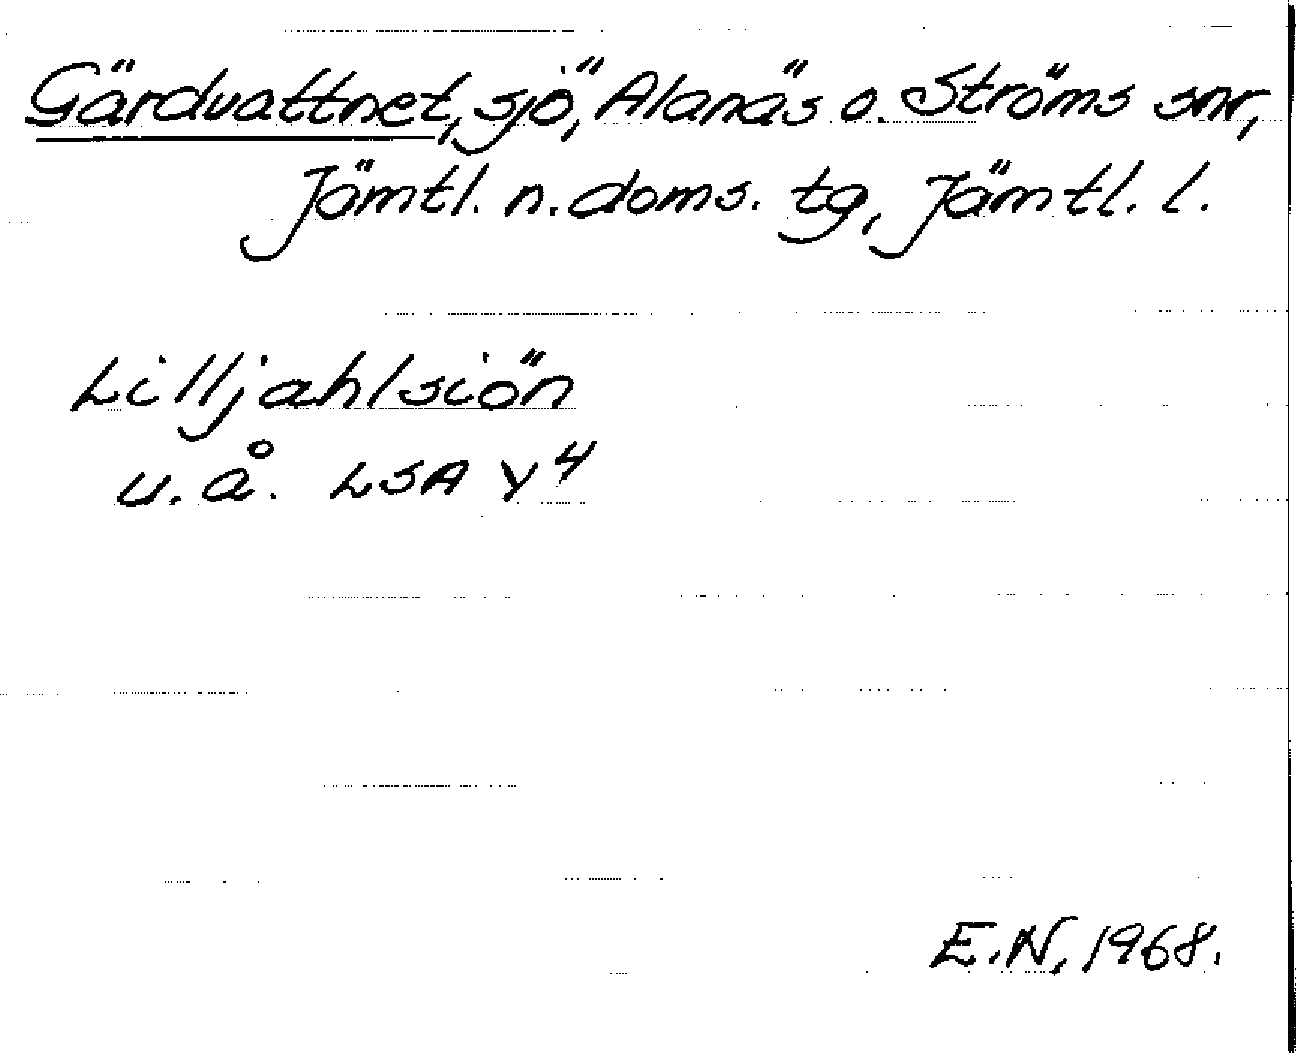 Gärdvattnet, sjö, Alanäs o. Ströms snr,
Jämtl. n. doms. tg, Jämtl. l.
Lilljahlsiön
u. å. LSA Y4
E.N, 1968.